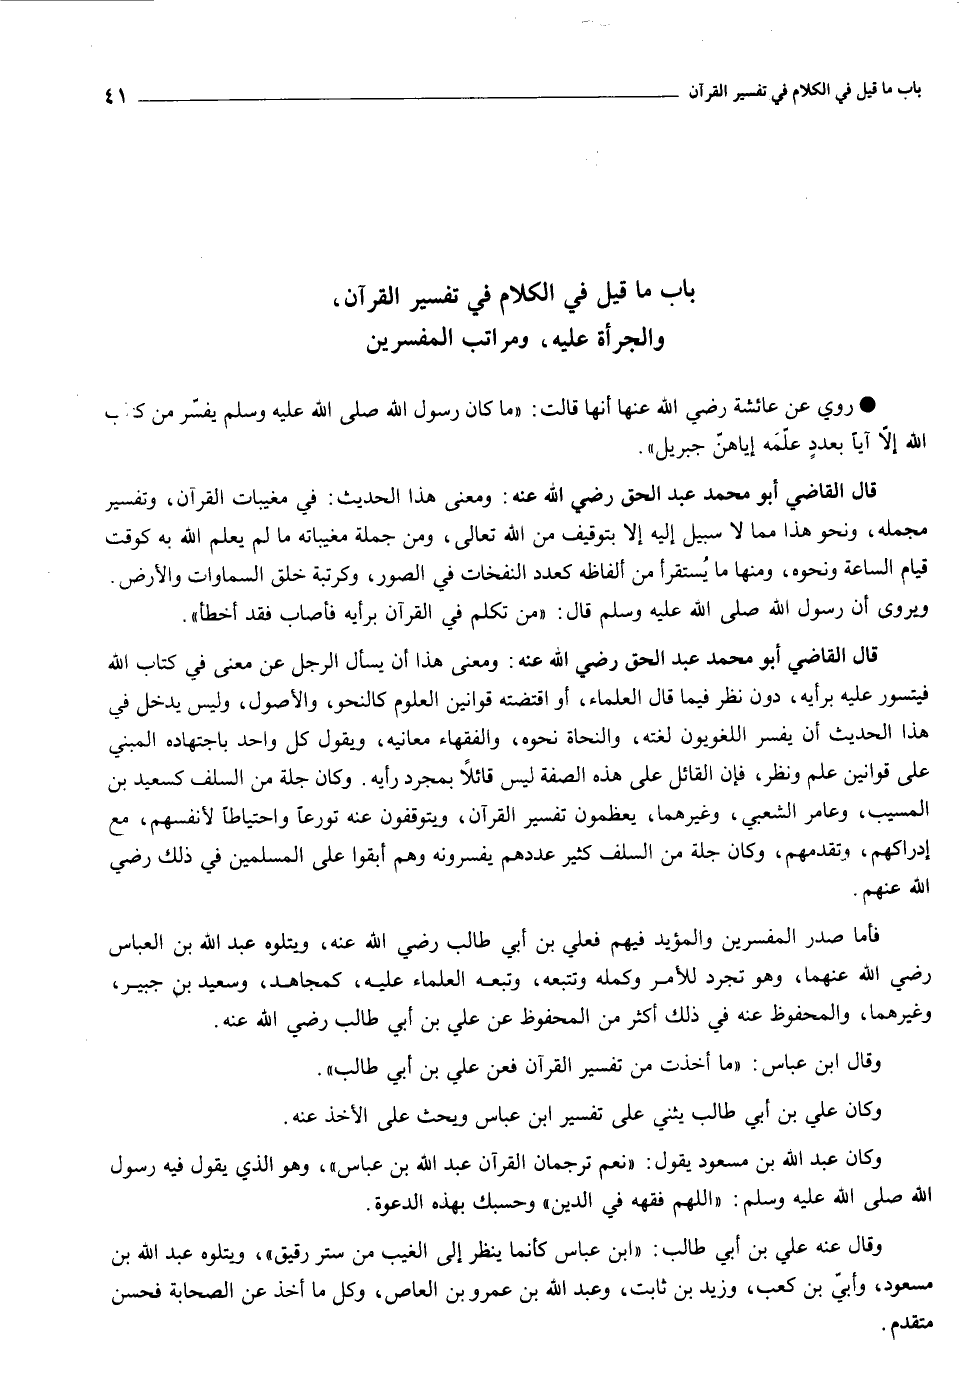 باب ما قيل في الكلام في تفسير القرآن ٤١
باب ما قيل في الكلام في تفسير القرآن،
والجرأة عليه، ومراتب المفسرين
● روي عن عائشة رضي الله عنها أنها قالت: «ما كان رسول الله صلى الله عليه وسلم يفسّر من كتاب
الله إلّا آياً بعددٍ علّمَه إياهنّ جبريل».
قال القاضي أبو محمد عبد الحق رضي الله عنه: ومعنى هذا الحديث: في مغيبات القرآن، وتفسير
مجمله، ونحو هذا مما لا سبيل إليه إلا بتوقيف من الله تعالى، ومن جملة مغيباته ما لم يعلم الله به كوقت
قيام الساعة ونحوه، ومنها ما يُستقرأ من ألفاظه كعدد النفخات في الصور، وكرتبة خلق السماوات والأرض.
ويروى أن رسول الله صلى الله عليه وسلم قال: «من تكلم في القرآن برأيه فأصاب فقد أخطأ».
قال القاضي أبو محمد عبد الحق رضي الله عنه: ومعنى هذا أن يسأل الرجل عن معنى في كتاب الله
فيتسور عليه برأيه، دون نظر فيما قال العلماء، أو اقتضته قوانين العلوم كالنحو، والأصول، وليس يدخل في
هذا الحديث أن يفسر اللغويون لغته، والنحاة نحوه، والفقهاء معانيه، ويقول كل واحد باجتهاده المبني
على قوانين علم ونظر، فإن القائل على هذه الصفة ليس قائلاً بمجرد رأيه. وكان جلة من السلف كسعيد بن
المسيب، وعامر الشعبي، وغيرهما، يعظمون تفسير القرآن، ويتوقفون عنه تورعاً واحتياطاً لأنفسهم، مع
إدراكهم، وتقدمهم، وكان جلة من السلف كثير عددهم يفسرونه وهم أبقوا على المسلمين في ذلك رضي
الله عنهم.
فأما صدر المفسرين والمؤيد فيهم فعلي بن أبي طالب رضي الله عنه، ويتلوه عبد الله بن العباس
رضي الله عنهما، وهو تجرد للأمر وكمله وتتبعه، وتبعه العلماء عليه، كمجاهد، وسعيد بن جبير،
وغيرهما، والمحفوظ عنه في ذلك أكثر من المحفوظ عن علي بن أبي طالب رضي الله عنه.
وقال ابن عباس: «ما أخذت من تفسير القرآن فعن علي بن أبي طالب».
وكان علي بن أبي طالب يثني على تفسير ابن عباس ويحث على الأخذ عنه.
وكان عبد الله بن مسعود يقول: «نعم ترجمان القرآن عبد الله بن عباس»، وهو الذي يقول فيه رسول
الله صلى الله عليه وسلم: «اللهم فقهه في الدين» وحسبك بهذه الدعوة.
وقال عنه علي بن أبي طالب: «ابن عباس كأنما ينظر إلى الغيب من ستر رقيق»، ويتلوه عبد الله بن
مسعود، وأبيّ بن كعب، وزيد بن ثابت، وعبد الله بن عمرو بن العاص، وكل ما أخذ عن الصحابة فحسن
متقدم.